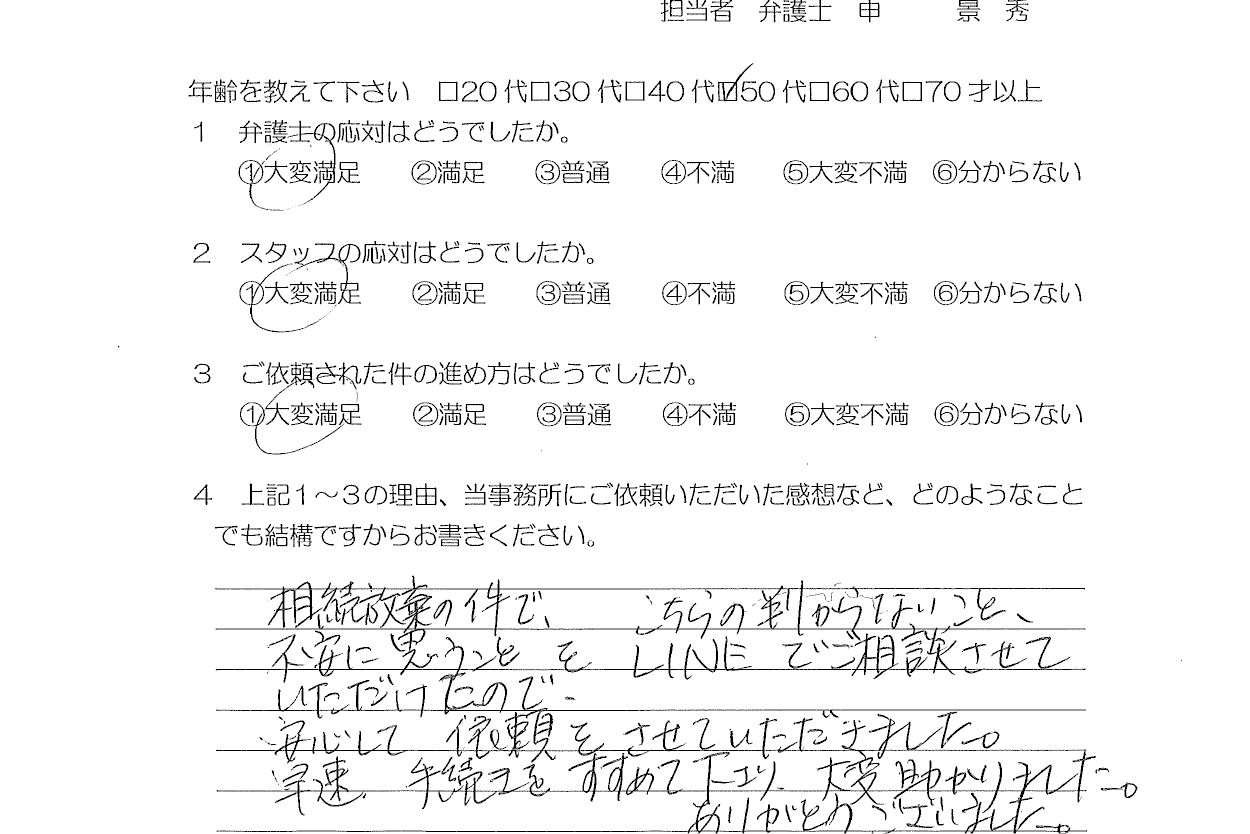 担当者 弁護士 申 景 秀
年齢を教えて下さい □20代□30代□40代☑50代□60代□70才以上
1 弁護士の応対はどうでしたか。
①大変満足 ②満足 ③普通 ④不満 ⑤大変不満 ⑥分からない
2 スタッフの応対はどうでしたか。
①大変満足 ②満足 ③普通 ④不満 ⑤大変不満 ⑥分からない
3 ご依頼された件の進め方はどうでしたか。
①大変満足 ②満足 ③普通 ④不満 ⑤大変不満 ⑥分からない
4 上記1～3の理由、当事務所にご依頼いただいた感想など、どのようなこと
でも結構ですからお書きください。
相続放棄の件で、 こちらの判からないこと、
不安に思うこと を LINE でご相談させて
いただけたので、
安心して 依頼を させていただきました。
早速、手続きを すすめて下さり、大変助かりました。
ありがとうございました。